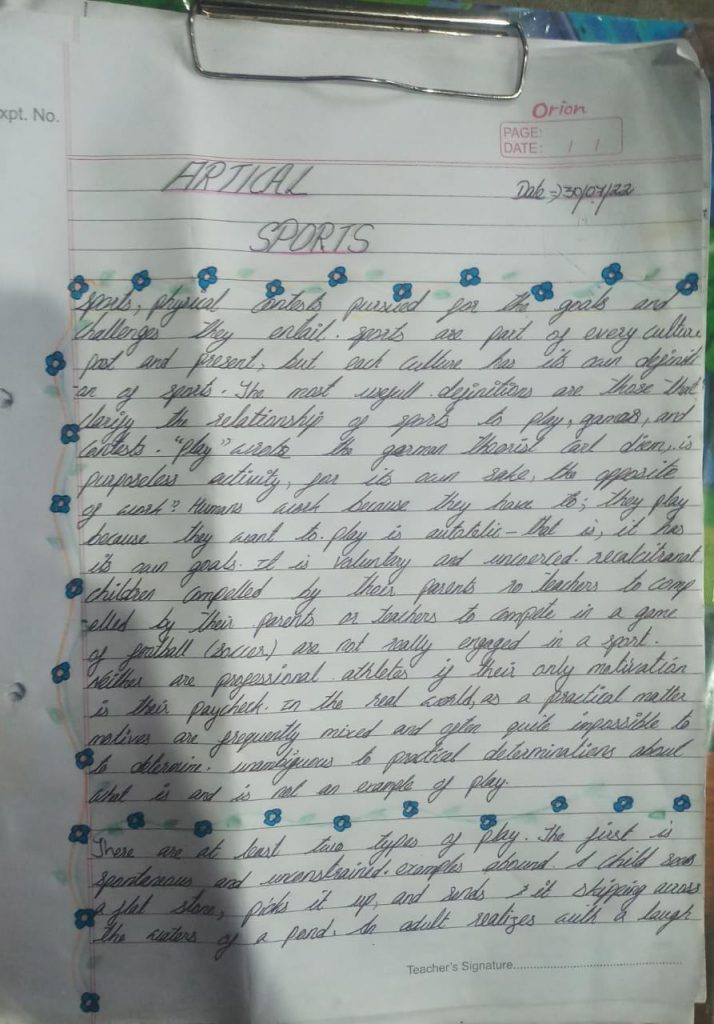 Expt. No.
Orion
PAGE:
DATE: / /
ARTICAL
Date => 30/07/22
SPORTS
sports, physical contests pursued for the goals and
challenges they entail. sports are part of every culture
past and present, but each culture has its own definit
-on of sports. The most usefull definitions are those that
clarify the relationship of sports to play, games, and
contests. "play" wrote the garman theorist Carl diem, is
purposeless activity, for its own sake, the opposite
of work? Humans work because they have to; they play
because they want to. play is autotelic - that is, it has
its own goals. It is voluntary and uncoerced. recalcitranat
children compelled by their parents ro teachers to comp
-elled by their parents or teachers to compete in a game
of football (soccer) are not really engaged in a sport.
neither are professional athletes if their only motivation
is their paycheck. In the real world, as a practical matter
motives are frequently mixed and often quite impossible to
to determine. unambiguous to practical determinations about
what is and is not an example of play.
There are at least two types of play. The first is
spontaneous and unconstrained. examples abound. A child sees
a flat stone, picks it up, and sends it skipping across
the waters of a pond. An adult realizes with a laugh
Teacher's Signature